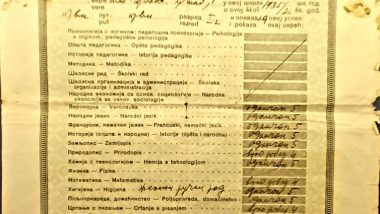 у овој школи 1935/36 шк. год.
u ovoj školi šk. god.
пут разред I-a и показао овај успех:
put razred i pokazao ovaj uspeh:
Психологија с логиком, педагошка психологија — Psihologija
s logikom, pedagoška psihologija
Општа педагогика — Opšta pedagogika
Историја педагогике — Istorija pedagogike
Методика — Metodika
Школски рад — Školski rad
Школска организација и администрација — Školska
organizacija i administracija
Народна економија са основ. социологије — Narodna
ekonomija sa osnov. sociologije
Веронаука — Veronauka одличан 5
Народни језик — Narodni jezik одличан 5
Француски, немачки језик — Francuski, nemački jezik одличан 5
Историја (општа и народна) — Istorija (opšta i narodna) одличан 5
Земљопис — Zemljopis одличан 5
Природопис — Prirodopis врло добар 4
Хемија с технологијом — Hemija s tehnologijom
Физика — Fizika
Математика — Matematika врло добар 4
Хигијена — Higijena ручни рад одличан 5
Пољопривреда, домаћинство — Poljoprivreda, domaćinstvo
Цртање с писањем — Crtanje s pisanjem врло добар 4